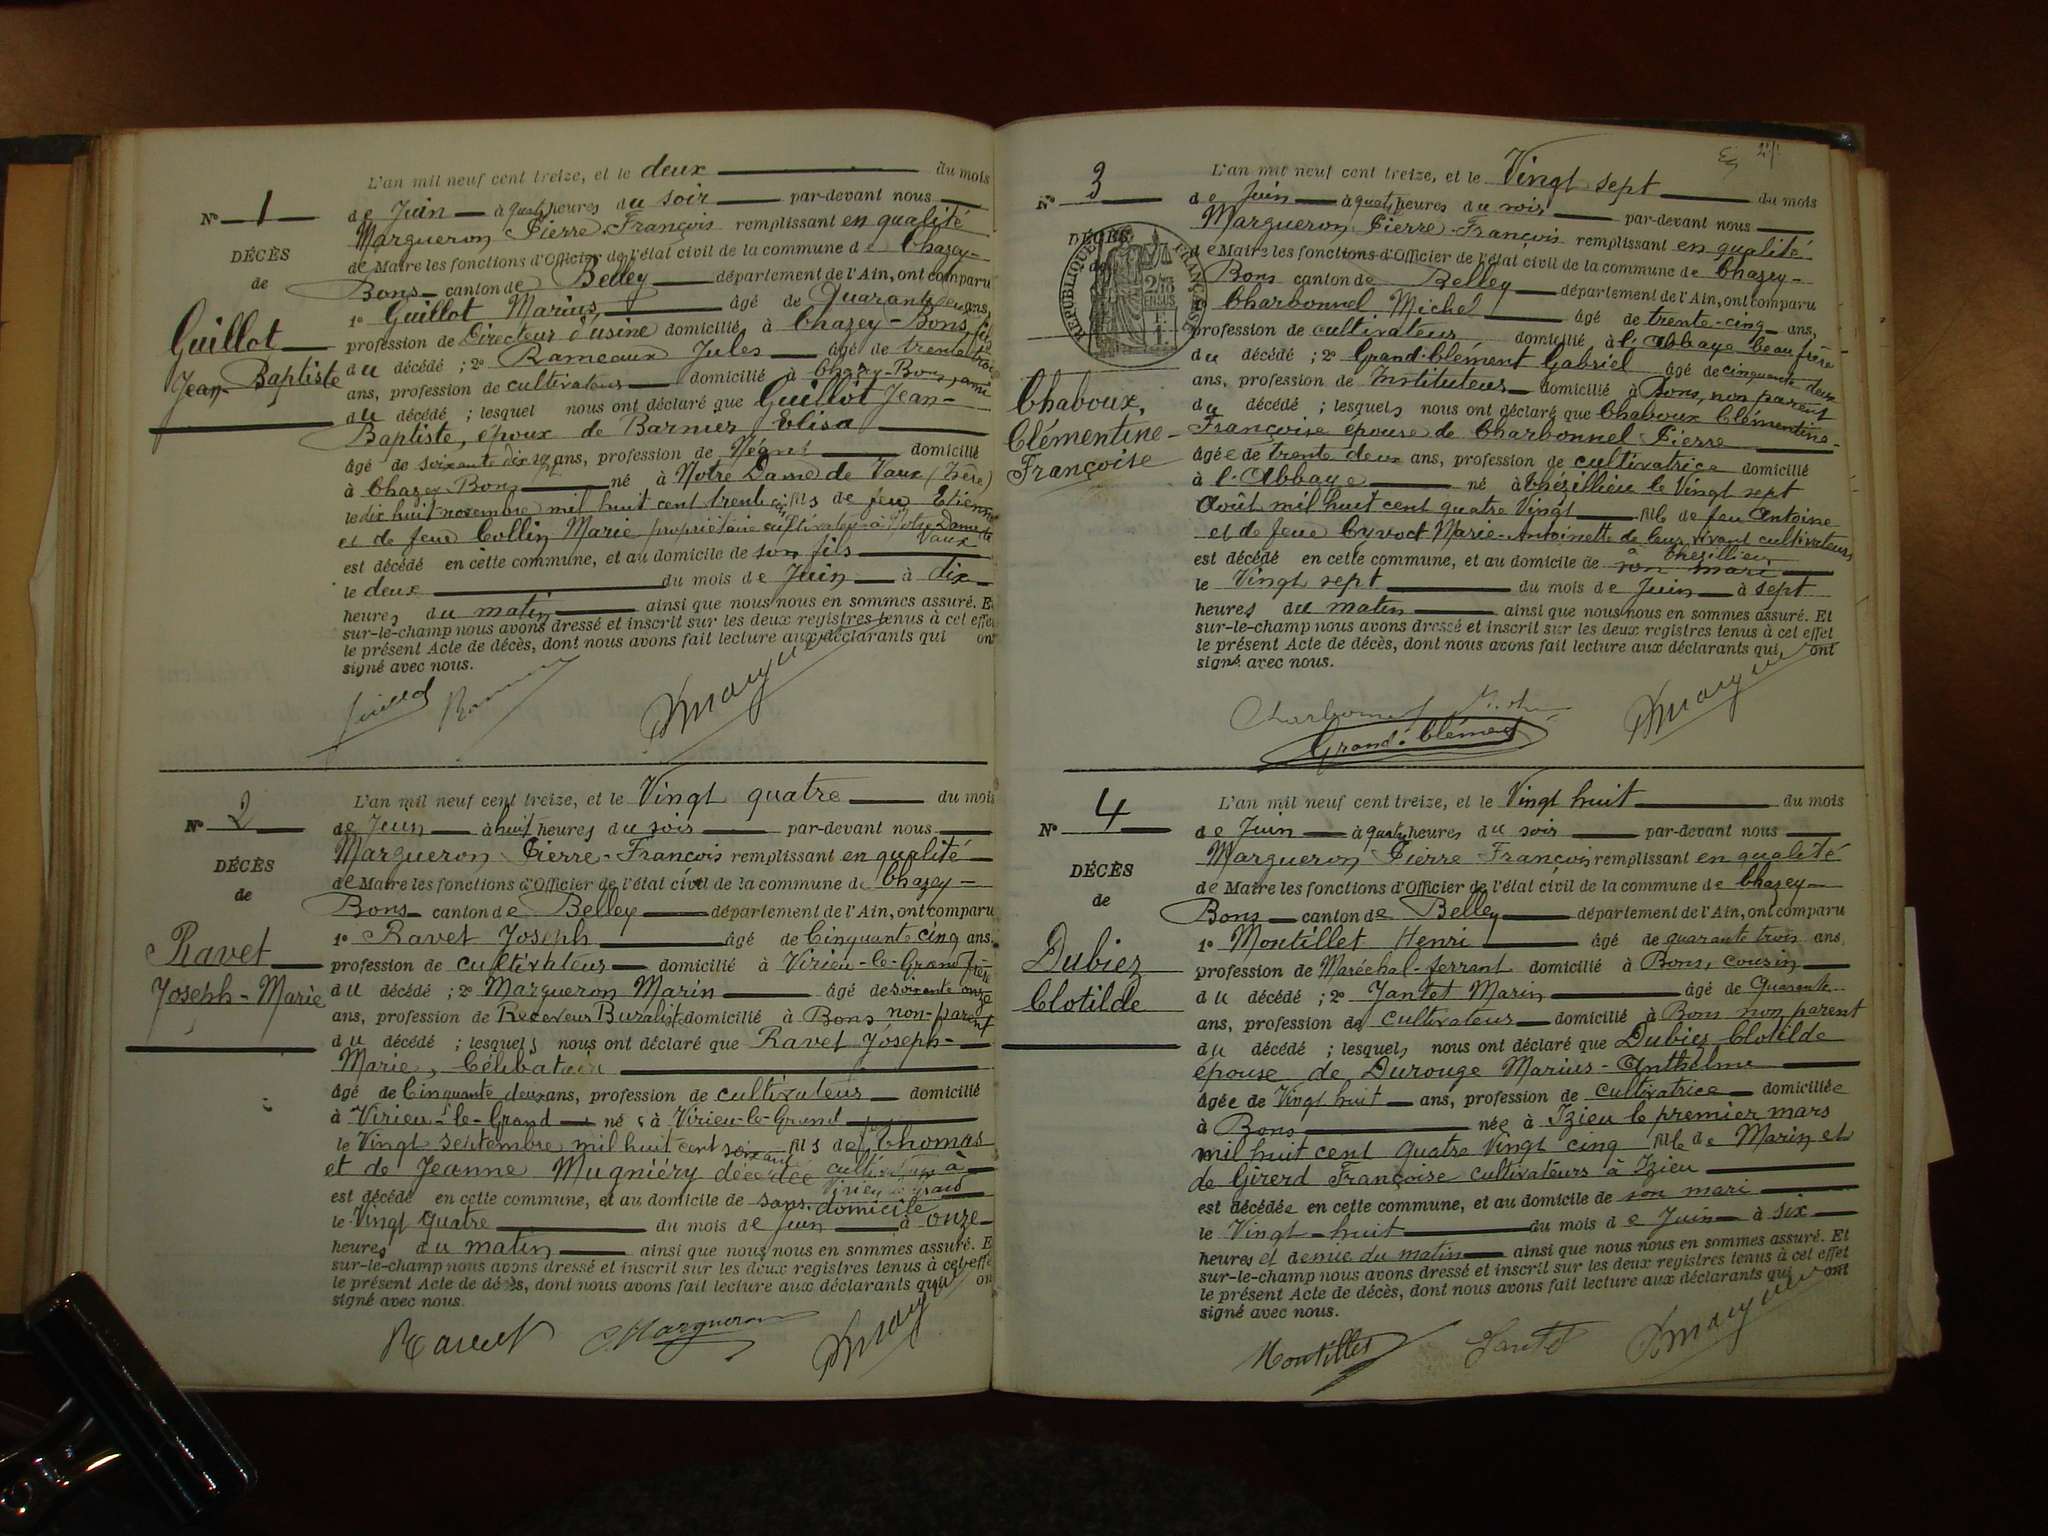 L'an mil neuf cent treize, et le deux du mois
N° 1
de Juin à quatre heures du soir par-devant nous
Margueron Pierre-François remplissant en qualité
DÉCÈS
de Maire les fonctions d'Officier de l'état civil de la commune de Chazey-
de
Bons canton de Belley département de l'Ain, ont comparu
1° Guillot Marius âgé de Quarante deux ans,
Guillot
profession de Directeur d'usine domicilié à Chazey-Bons, fils
Jean-Baptiste
du décédé ; 2° Rameaux Jules âgé de trente trois
ans, profession de cultivateur domicilié à Chazey-Bons, ami
du décédé ; lesquels nous ont déclaré que Guillot Jean-
Baptiste, époux de Barnier Elisa
âgé de soixante dix ans, profession de domicilié
à Chazey-Bons né à Notre Dame de Vaux (Isère)
le dix huit novembre mil huit cent trente fils de feu Etienne
et de feue Collin Marie propriétaire cultivateur à Notre Dame de
Vaux
est décédé en cette commune, et au domicile de son fils
le deux du mois de Juin à dix
heures du matin ainsi que nous nous en sommes assuré. E
sur-le-champ nous avons dressé et inscrit sur les deux registres tenus à cet effet
le présent Acte de décès, dont nous avons fait lecture aux déclarants qui ont
signé avec nous.
L'an mil neuf cent treize, et le Vingt quatre du mois
N° 2
de Juin à huit heures du soir par-devant nous
Margueron Pierre-François remplissant en qualité
DÉCÈS
de Maire les fonctions d'Officier de l'état civil de la commune de Chazey-
de
Bons canton de Belley département de l'Ain, ont comparu
1° Ravet Joseph âgé de Cinquante cinq ans,
Ravet
profession de cultivateur domicilié à Virieu-le-Grand frère
Joseph-Marie
du décédé ; 2° Margueron Marin âgé de soixante onze
ans, profession de Receveur Buraliste domicilié à Bons non-parent
du décédé ; lesquels nous ont déclaré que Ravet Joseph-
Marie, Célibataire
âgé de Cinquante deux ans, profession de cultivateur domicilié
à Virieu-le-Grand né à Virieu-le-Grand
le Vingt septembre mil huit cent soixante fils de feu Thomas
et de Jeanne Mugniéry décédée cultivateurs à
Virieu le Grand
est décédé en cette commune, et au domicile de sans domicile
le Vingt quatre du mois de Juin à onze
heures du matin ainsi que nous nous en sommes assuré. E
sur-le-champ nous avons dressé et inscrit sur les deux registres tenus à cet effe
le présent Acte de décès, dont nous avons fait lecture aux déclarants qui on
signé avec nous.
Ravet Margueron
L'an mil neuf cent treize, et le Vingt sept du mois
N° 3
de Juin à quatre heures du soir par-devant nous
Margueron Pierre-François remplissant en qualité
DÉCÈS
de Maire les fonctions d'Officier de l'état civil de la commune de Chazey-
RÉPUBLIQUE FRANÇAISE
Bons canton de Belley département de l'Ain, ont comparu
1° Charbonnel Michel âgé de trente-cinq ans,
profession de cultivateur domicilié à l'Abbaye beau frère
du décédé ; 2° Grand-Clément Gabriel âgé de cinquante deux
ans, profession de Instituteur domicilié à Bons, non parent
Chaboux,
du décédé ; lesquels nous ont déclaré que Chaboux Clémentine-
Clémentine-
Françoise épouse de Charbonnel Pierre
Françoise
âgée de trente deux ans, profession de cultivatrice domicilié
à l'Abbaye né à Chézillieu le Vingt sept
Août mil huit cent quatre Vingt fille de feu Antoine
et de feue Cyvoct Marie-Antoinette de leur vivant cultivateurs
à Chézillieu
est décédé en cette commune, et au domicile de son mari
le Vingt sept du mois de Juin à sept
heures du matin ainsi que nous nous en sommes assuré. Et
sur-le-champ nous avons dressé et inscrit sur les deux registres tenus à cet effet
le présent Acte de décès, dont nous avons fait lecture aux déclarants qui ont
signé avec nous.
Grand-Clément
L'an mil neuf cent treize, et le Vingt huit du mois
N° 4
de Juin à quatre heures du soir par-devant nous
Margueron Pierre François remplissant en qualité
DÉCÈS
de Maire les fonctions d'Officier de l'état civil de la commune de Chazey-
de
Bons canton de Belley département de l'Ain, ont comparu
1° Montillet Henri âgé de quarante trois ans,
Dubiez
profession de Maréchal-ferrant domicilié à Bons, cousin
Clotilde
du décédé ; 2° Jantet Marin âgé de Quarante
ans, profession de cultivateur domicilié à Bons non parent
du décédé ; lesquels nous ont déclaré que Dubiez Clotilde
épouse de Durouge Marius-Anthelme
âgée de Vingt huit ans, profession de cultivatrice domiciliée
à Bons née à Izieu le premier mars
mil huit cent quatre Vingt cinq fille de Marin et
de Girerd Françoise cultivateurs à Izieu
est décédée en cette commune, et au domicile de son mari
le Vingt-huit du mois de Juin à six
heures et demie du matin ainsi que nous nous en sommes assuré. Et
sur-le-champ nous avons dressé et inscrit sur les deux registres tenus à cet effet
le présent Acte de décès, dont nous avons fait lecture aux déclarants qui ont
signé avec nous.
Montillet Jantet